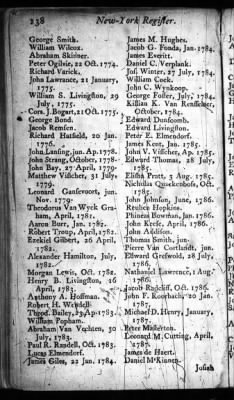 238 New-York Register.
George Smith.
William Wilcox.
Abraham Skinner.
Peter Ogilvie, 22 Oct. 1774.
Richard Varick.
John Lawrance, 21 January,
1775.
William S. Livingston, 29
July, 1775.
Corn. J. Bogart, 21 Oct. 1775.
George Bond.
Jacob Remsen.
Richard Hatfield, 20 Jan.
1776.
John Lansing, jun. Ap. 1778.
John Strang, October, 1778.
John Bay, 27 April, 1779.
Matthew Visscher, 31 July,
1779.
Leonard Gansevoort, jun.
Nov. 1779.
Theodorus Van Wyck Gra-
ham, April, 1781.
Aaron Burr, Jan. 1782.
Robert Troup, April, 1782.
Ezekiel Gilbert, 26 April,
1782.
Alexander Hamilton, July,
1782.
Morgan Lewis, Oct. 1782.
Henry B. Livingston, 16
April, 1783.
Anthony A. Hoffman.
Robert H. Wendell.
Theod. Bailey, 23 Ap. 1783.
William Popham.
Abraham Van Vechten, 30
July, 1783.
Paul R. Randell, Oct. 1783.
Lucas Elmendorf.
James Giles, 22 Jan. 1784.
James M. Hughes.
Jacob G. Fonda, Jan. 1784.
James Everitt.
Daniel C. Verplank.
Winter, 27 July, 1784.
William Cock.
John C. Wynkoop.
George Foster, July, 1784.
Killian K. Van Rensselaer,
October, 1784.
Edward Dunscomb.
Edward Livingston.
Peter E. Elmendorf.
James Kent, Jan. 1785.
John V. Visscher, Ap. 1785.
Edward Thomas, 28 July,
1785.
Elisha Pratt, 3 Aug. 1785.
Nicholas Quackenbos, Oct.
1785.
John Johnson, June, 1786.
Reuben Hopkins.
Phineas Bowman, Jan. 1786.
John Keese, April, 1786.
John Addison.
Thomas Smith, jun.
Pierre Van Cortlandt, jun.
Edward Greswold, 28 July,
1786.
Nathaniel Lawrance, Aug.
1786.
Jacob Radcliff, Oct. 1786.
John F. Roorbach, 20 Jan.
1787.
Michael D. Henry, January,
1787.
Peter Masterton.
Leonard M. Cutting, April,
1787.
James de Haert.
Daniel
Josiah